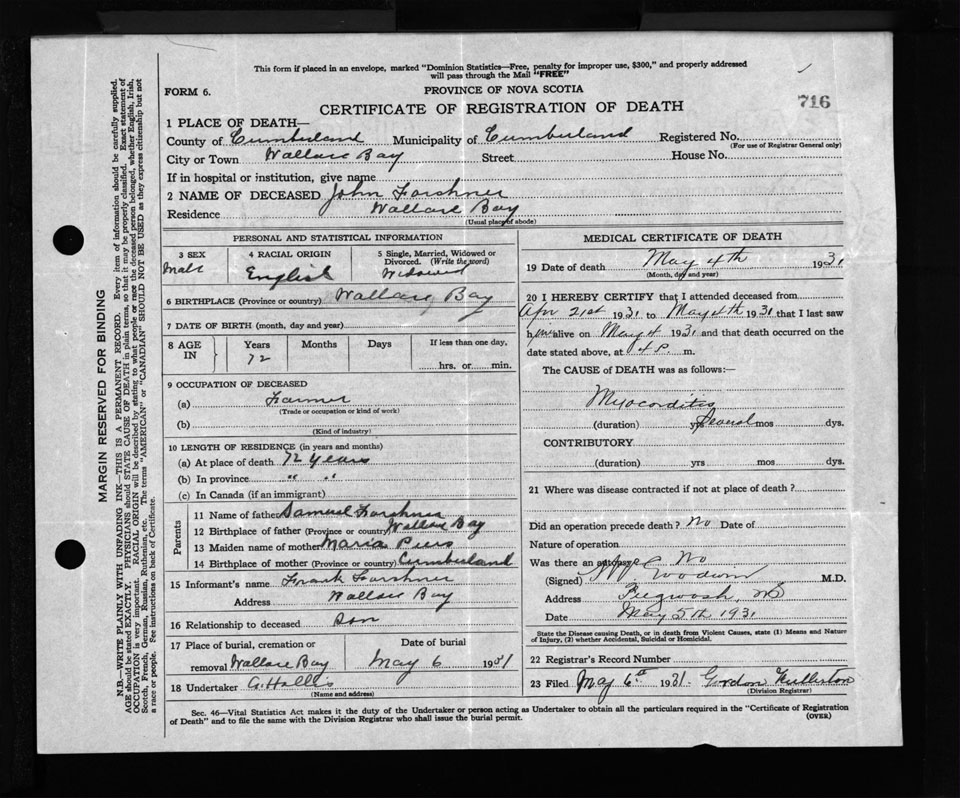 This form if placed in an envelope, marked "Dominion Statistics—Free, penalty for improper use, $300," and properly addressed
will pass through the Mail "FREE"
FORM 6.
PROVINCE OF NOVA SCOTIA
716
CERTIFICATE OF REGISTRATION OF DEATH
1 PLACE OF DEATH—
County of Cumberland Municipality of Cumberland Registered No.
(For use of Registrar General only)
City or Town Wallace Bay Street House No.
If in hospital or institution, give name
2 NAME OF DECEASED John Forshner
Residence Wallace Bay
(Usual place of abode)
PERSONAL AND STATISTICAL INFORMATION
3 SEX Male
4 RACIAL ORIGIN English
5 Single, Married, Widowed or Divorced. (Write the word) Widowed
6 BIRTHPLACE (Province or country) Wallace Bay
7 DATE OF BIRTH (month, day and year)
8 AGE IN Years Months Days If less than one day,
72 hrs. or min.
9 OCCUPATION OF DECEASED
(a) Farmer
(Trade or occupation or kind of work)
(b)
(Kind of industry)
10 LENGTH OF RESIDENCE (in years and months)
(a) At place of death 72 years
(b) In province " "
(c) In Canada (if an immigrant)
Parents
11 Name of father Samuel Forshner
12 Birthplace of father (Province or country) Wallace Bay
13 Maiden name of mother Maria Peers
14 Birthplace of mother (Province or country) Cumberland
15 Informant's name Frank Forshner
Address Wallace Bay
16 Relationship to deceased Son
17 Place of burial, cremation or removal Wallace Bay
Date of burial May 6 1931
18 Undertaker G. Hollis
(Name and address)
MEDICAL CERTIFICATE OF DEATH
19 Date of death May 4th 1931
(Month, day and year)
20 I HEREBY CERTIFY that I attended deceased from
Apr 21st 1931 to May 4th 1931 that I last saw
him alive on May 4 1931 and that death occurred on the
date stated above, at 4 P. m.
The CAUSE of DEATH was as follows:—
Myocarditis
(duration) yrs Several mos dys.
CONTRIBUTORY
(duration) yrs mos dys.
21 Where was disease contracted if not at place of death?
Did an operation precede death? No Date of
Nature of operation
Was there an autopsy No
(Signed) M.D.
Address Pugwash, NS
Date May 5th 1931
State the Disease causing Death, or in death from Violent Causes, state (1) Means and Nature
of Injury, (2) whether Accidental, Suicidal or Homicidal.
22 Registrar's Record Number
23 Filed May 6th 1931 Gordon Fullerton
(Division Registrar)
Sec. 46—Vital Statistics Act makes it the duty of the Undertaker or person acting as Undertaker to obtain all the particulars required in the "Certificate of Registration
of Death" and to file the same with the Division Registrar who shall issue the burial permit.
(OVER)
MARGIN RESERVED FOR BINDING
N.B.—WRITE PLAINLY WITH UNFADING INK—THIS IS A PERMANENT RECORD. Every item of information should be carefully supplied.
AGE should be stated EXACTLY. PHYSICIANS should STATE CAUSE OF DEATH in plain terms, so that it may be properly classified. Exact statement of
OCCUPATION is very important. RACIAL ORIGIN will be described by stating to what people or race the deceased person belonged, whether English, Irish,
Scotch, French, German, Russian, Ruthenian, etc. The terms "AMERICAN" or "CANADIAN" SHOULD NOT BE USED as they express citizenship but not
a race or people. See instructions on back of Certificate.